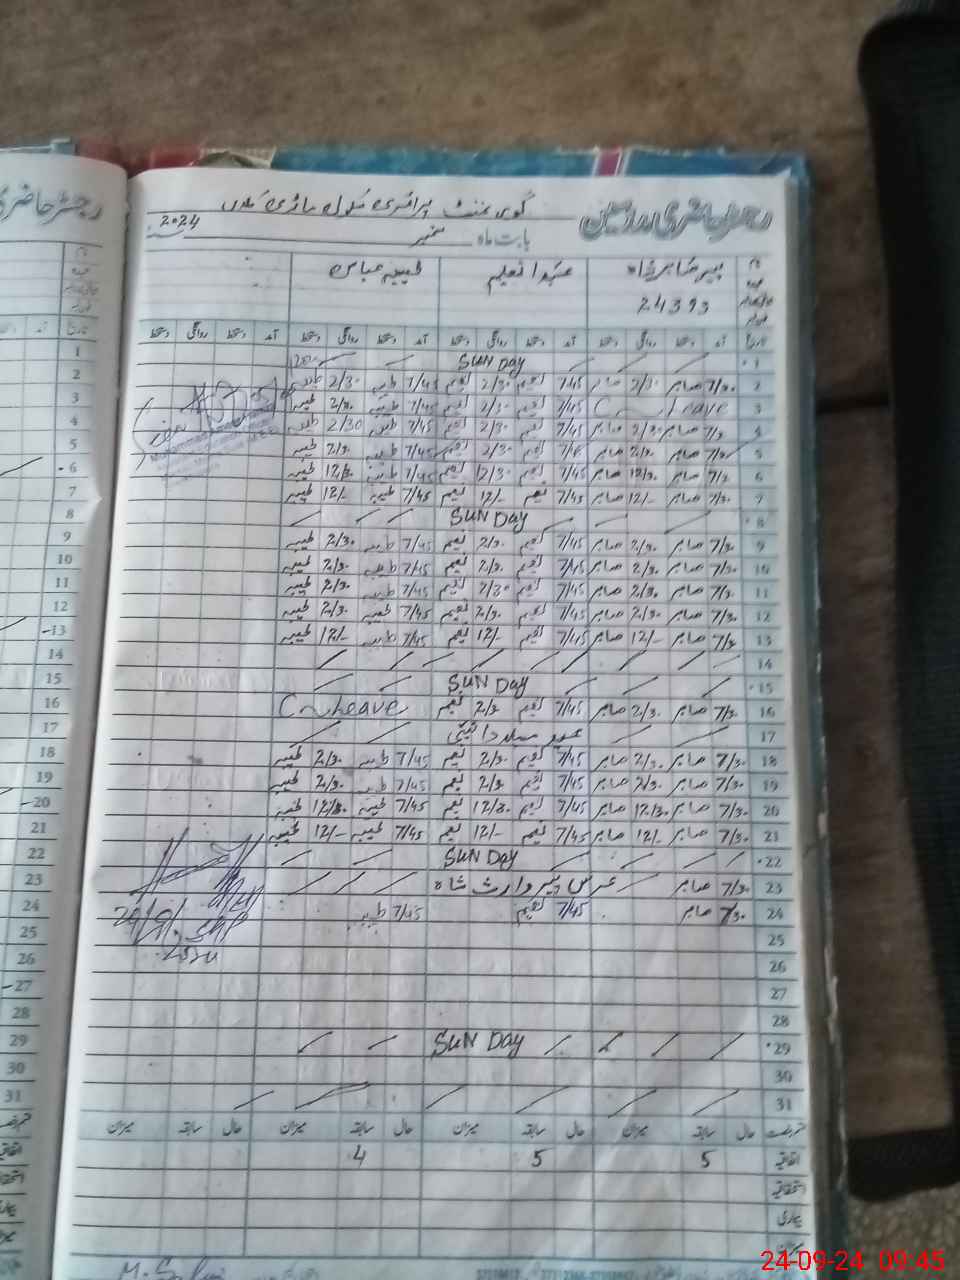 رجسٹر حاضری مدرسین
گورنمنٹ پرائمری سکول ماڑی
2024
بابت ماہ ستمبر
نام پیر صابر شاہ طیبہ عباس
24393
تاریخ آمد دستخط روانگی دستخط آمد دستخط روانگی دستخط آمد دستخط روانگی دستخط آمد دستخط روانگی دستخط
1 SUNDAY
2 7/30 صابر 2/30 صابر 7/45 نعیم 2/30 نعیم 7/45 طیبہ 2/30 طیبہ
3 C Leave 7/45 نعیم 2/30 نعیم 7/45 طیبہ 2/30 طیبہ
4 7/30 صابر 2/30 صابر 7/45 نعیم 2/30 نعیم 7/45 طیبہ 2/30 طیبہ
5 7/30 صابر 2/30 صابر 7/45 نعیم 2/30 نعیم 7/45 طیبہ 2/30 طیبہ
6 7/30 صابر 12/30 صابر 7/45 نعیم 12/30 نعیم 7/45 طیبہ 12/30 طیبہ
7 7/30 صابر 12/- صابر 7/45 نعیم 12/- نعیم 7/45 طیبہ 12/- طیبہ
8 SUNDAY
9 7/30 صابر 2/30 صابر 7/45 نعیم 2/30 نعیم 7/45 طیبہ 2/30 طیبہ
10 7/30 صابر 2/30 صابر 7/45 نعیم 2/30 نعیم 7/45 طیبہ 2/30 طیبہ
11 7/30 صابر 2/30 صابر 7/45 نعیم 2/30 نعیم 7/45 طیبہ 2/30 طیبہ
12 7/30 صابر 2/30 صابر 7/45 نعیم 2/30 نعیم 7/45 طیبہ 2/30 طیبہ
13 7/30 صابر 12/- صابر 7/45 نعیم 12/- نعیم 7/45 طیبہ 12/- طیبہ
14
15 SUNDAY
16 7/30 صابر 2/30 صابر 7/45 نعیم 2/30 نعیم C Leave
17 عید میلاد النبی
18 7/30 صابر 2/30 صابر 7/45 نعیم 2/30 نعیم 7/45 طیبہ 2/30 طیبہ
19 7/30 صابر 2/30 صابر 7/45 نعیم 2/30 نعیم 7/45 طیبہ 2/30 طیبہ
20 7/30 صابر 12/30 صابر 7/45 نعیم 12/30 نعیم 7/45 طیبہ 12/30 طیبہ
21 7/30 صابر 12/- صابر 7/45 نعیم 12/- نعیم 7/45 طیبہ 12/- طیبہ
22 SUNDAY
23 7/30 صابر عرس پیر وارث شاہ
24 7/30 صابر 7/45 نعیم 7/45 طیبہ
25
26
27
28
29 SUNDAY
30
31
قسم رخصت حال سابقہ میزان حال سابقہ میزان حال سابقہ میزان حال سابقہ میزان
اتفاقیہ 5 5 4
استحقاقیہ
بیماری
میزان
24-09-24 09:45